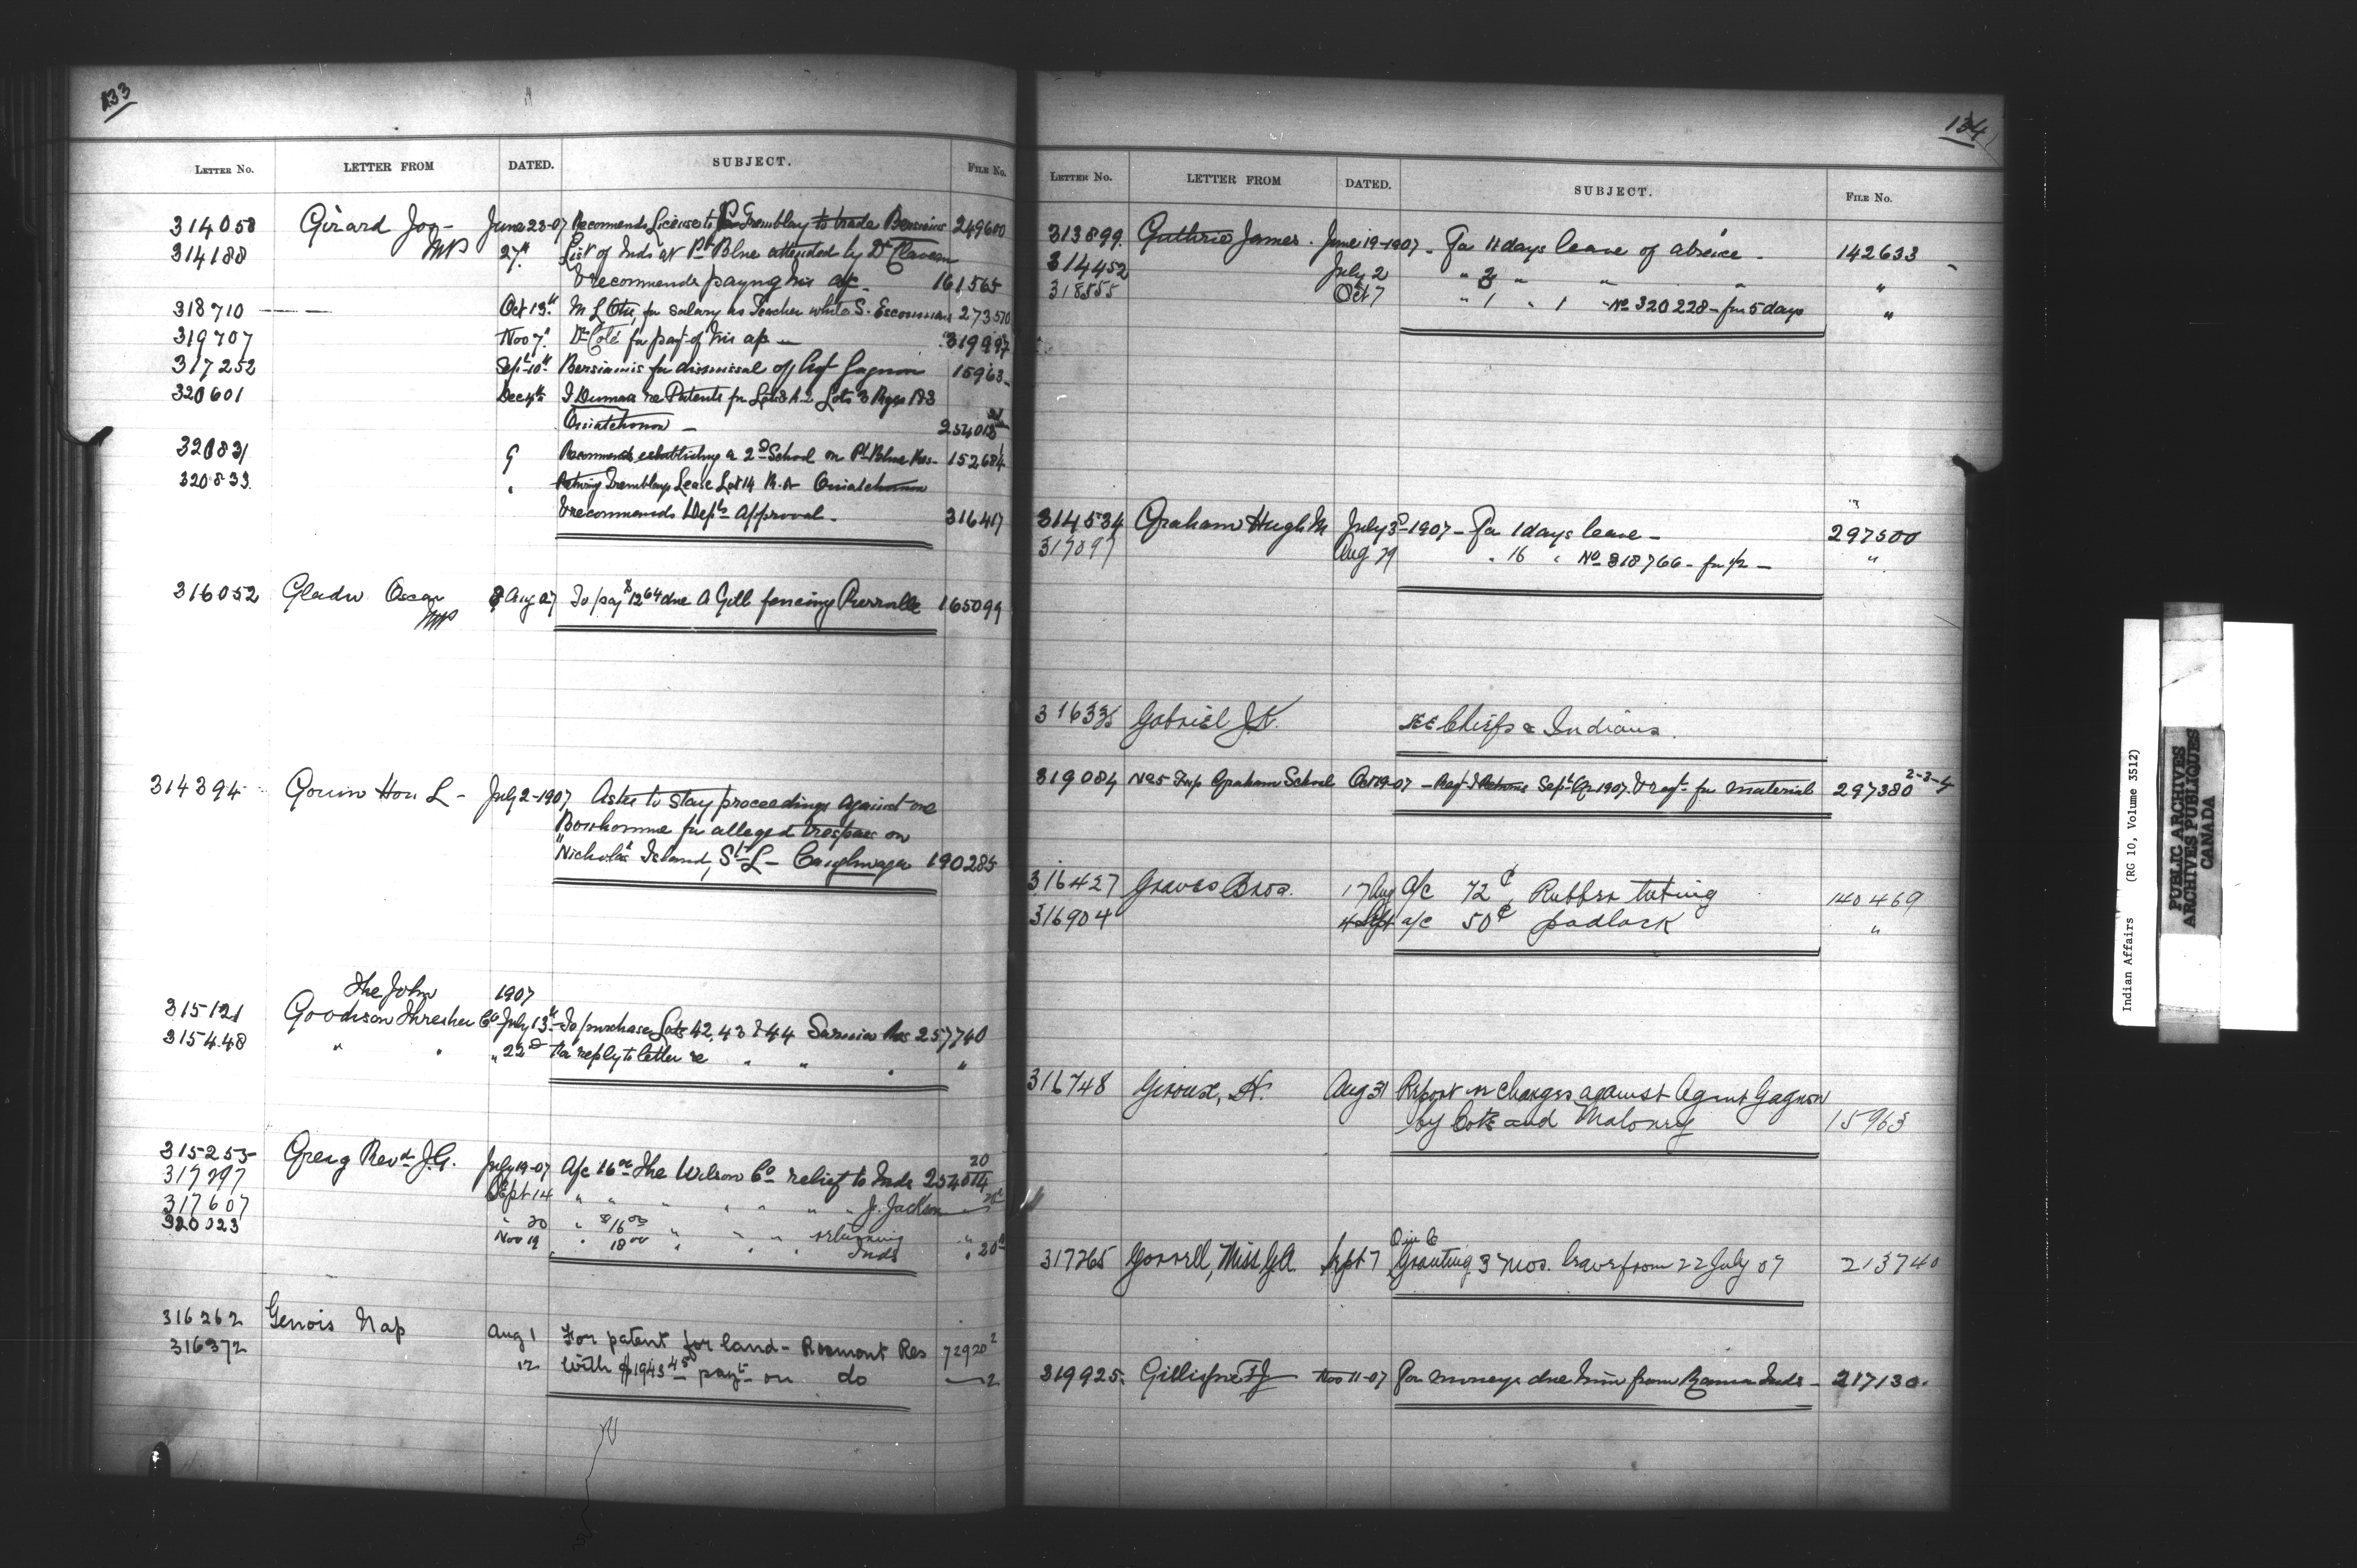 133
LETTER NO. LETTER FROM DATED. SUBJECT. FILE No.
314058 Girard Jos- June 23-07 Recommends License to Tremblay to trade Bersimis 249600
314188 MP 27th List of Inds at Pt Blue attended by Dr
& recommends paying his a/c. 161565
318710 Oct 13th M L Otis, for salary as Teacher while S. Escoumins 273570
319707 Nov 7th Dr Coté for pay't of his a/c 319997
317252 Sept 10th Bersimis for dismissal of Agt Gagnon 15963
320601 Dec 4th re Patents for Lots 3 Rge
Ouiatchouan - 254018
320831 9 Recommends establishing a 2nd School on Pt Blue Res- 152684
320833 " Tremblays Lease Lot 14 R. A Ouiatchouan
& recommends Depts Approval. 316417
316052 Gladu Oscar 8 Aug 07 To pay $12 64 due A Gill fencing Pierreville 165099
MP
314394 Gouin Hon L - July 2-1907 Asks to stay proceedings against one
Bonhomme for alleged trespass on
"Nicholas Island, St L - Caughnaga 190285
The John 1907
315121 Goodison Thresher Co July 13th To purchase Lots 42, 43 & 44 Sarnia Res 257740
315448 " " " 22nd For reply to letter re " " " "
315255 Greig Revd J.G. July 19-07 A/c 16 00 The Wilson Co relief to Inds 254014 20
317297 Sept 14 " " " " " " J. Jackson
317607 " 20 " $16 00 " " " returning "
320023 Nov 19 " 18 00 " " " Inds " 20
316262 Genois Nap Aug 1 For patent for land - Rocmont Res 72920 2
316372 12 With $1943 45 payt on do 2
134
LETTER NO. LETTER FROM DATED. SUBJECT. FILE No.
313899 Guthrie James. June 19-1907 - For 11 days leave of absence - 142633
314452 July 2 " 2 " " " "
318555 Oct 7 " 1 " 1 " No 320228 - for 5 days "
314534 Graham Hugh M July 3d-1907 - For 1 days leave - 297500
317097 Aug 29 " 16 " No 318766 - for 1/2 - "
316335 Gabriel J.K. SEE Chiefs & Indians.
319084 Graham School Oct 19-07 - Sept Qr 1907. & reqt for material 297380 2-3-4
316427 Graves Bros. 17 Aug a/c 72¢ Rubber tubing 140469
316904 4 Sept a/c 50¢ padlock "
316748 Giroux, H. Aug 31 Report re charges against Agent Gagnon
by Coté and Maloney 15963
O in C
317265 Gorrell, Miss G.A. Sept 7 Granting 3 mos. leave from 22 July 07 213740
319925. Gillispie Nov 11-07 For moneys due him from Rama Inds - 217130.
Indian Affairs (RG 10, Volume 3512)
PUBLIC ARCHIVES
ARCHIVES PUBLIQUES
CANADA